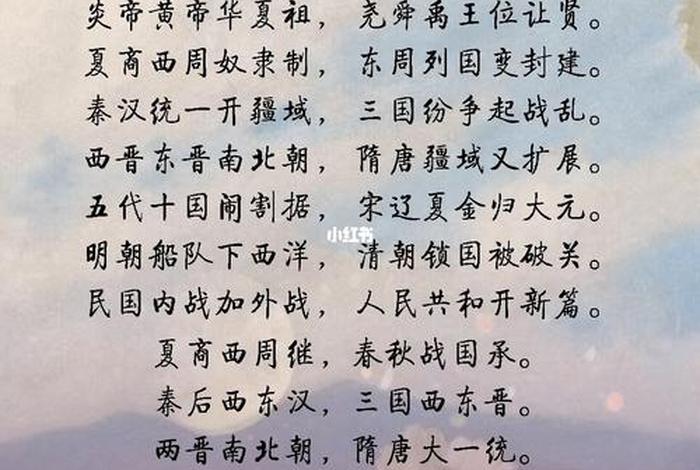 炎帝黄帝华夏祖，尧舜禹王位让贤。
夏商西周奴隶制，东周列国变封建。
秦汉统一开疆域，三国纷争起战乱。
西晋东晋南北朝，隋唐疆域又扩展。
五代十国闹割据，宋辽夏金归大元。
小红书
明朝船队下西洋，清朝锁国被破关。
民国内战加外战，人民共和开新篇。
夏商西周继，春秋战国承。
秦后西东汉，三国西东晋。
两晋南北朝，隋唐大一统。